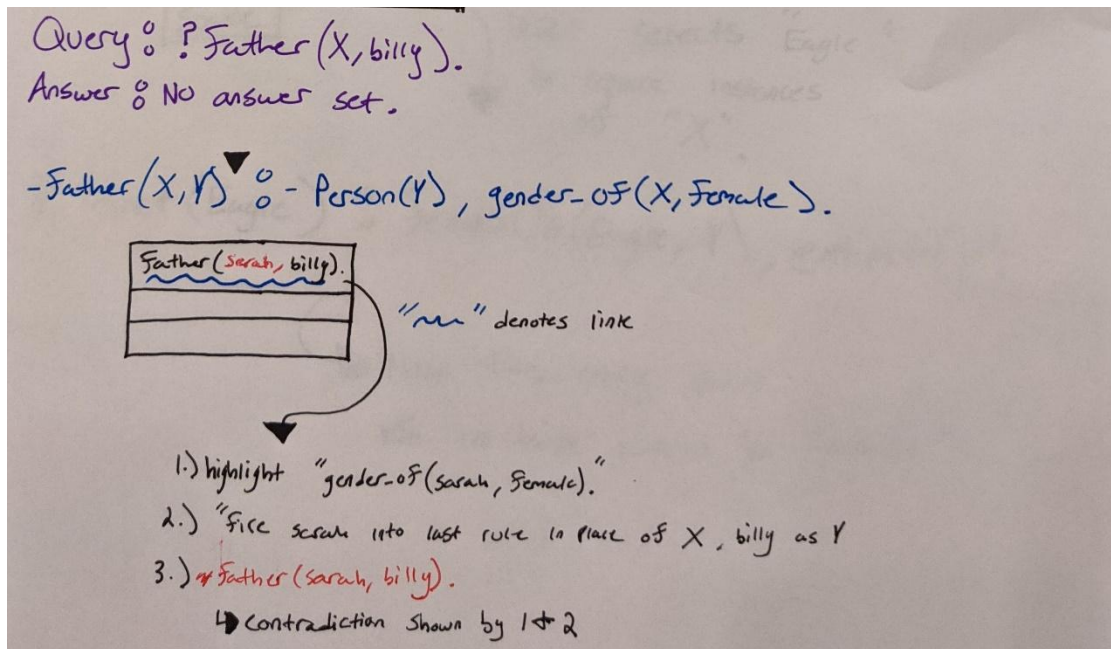 Query : ? Father (X, billy).
Answer : No answer set.
-Father (X, Y) :- Person(Y), gender_of (X, Female).
Father (sarah, billy).
"~~" denotes link
1.) highlight "gender_of (sarah, Female)."
2.) "fire sarah into last rule in place of X, billy as Y
3.) Father (sarah, billy).
↳ contradiction shown by 1 + 2